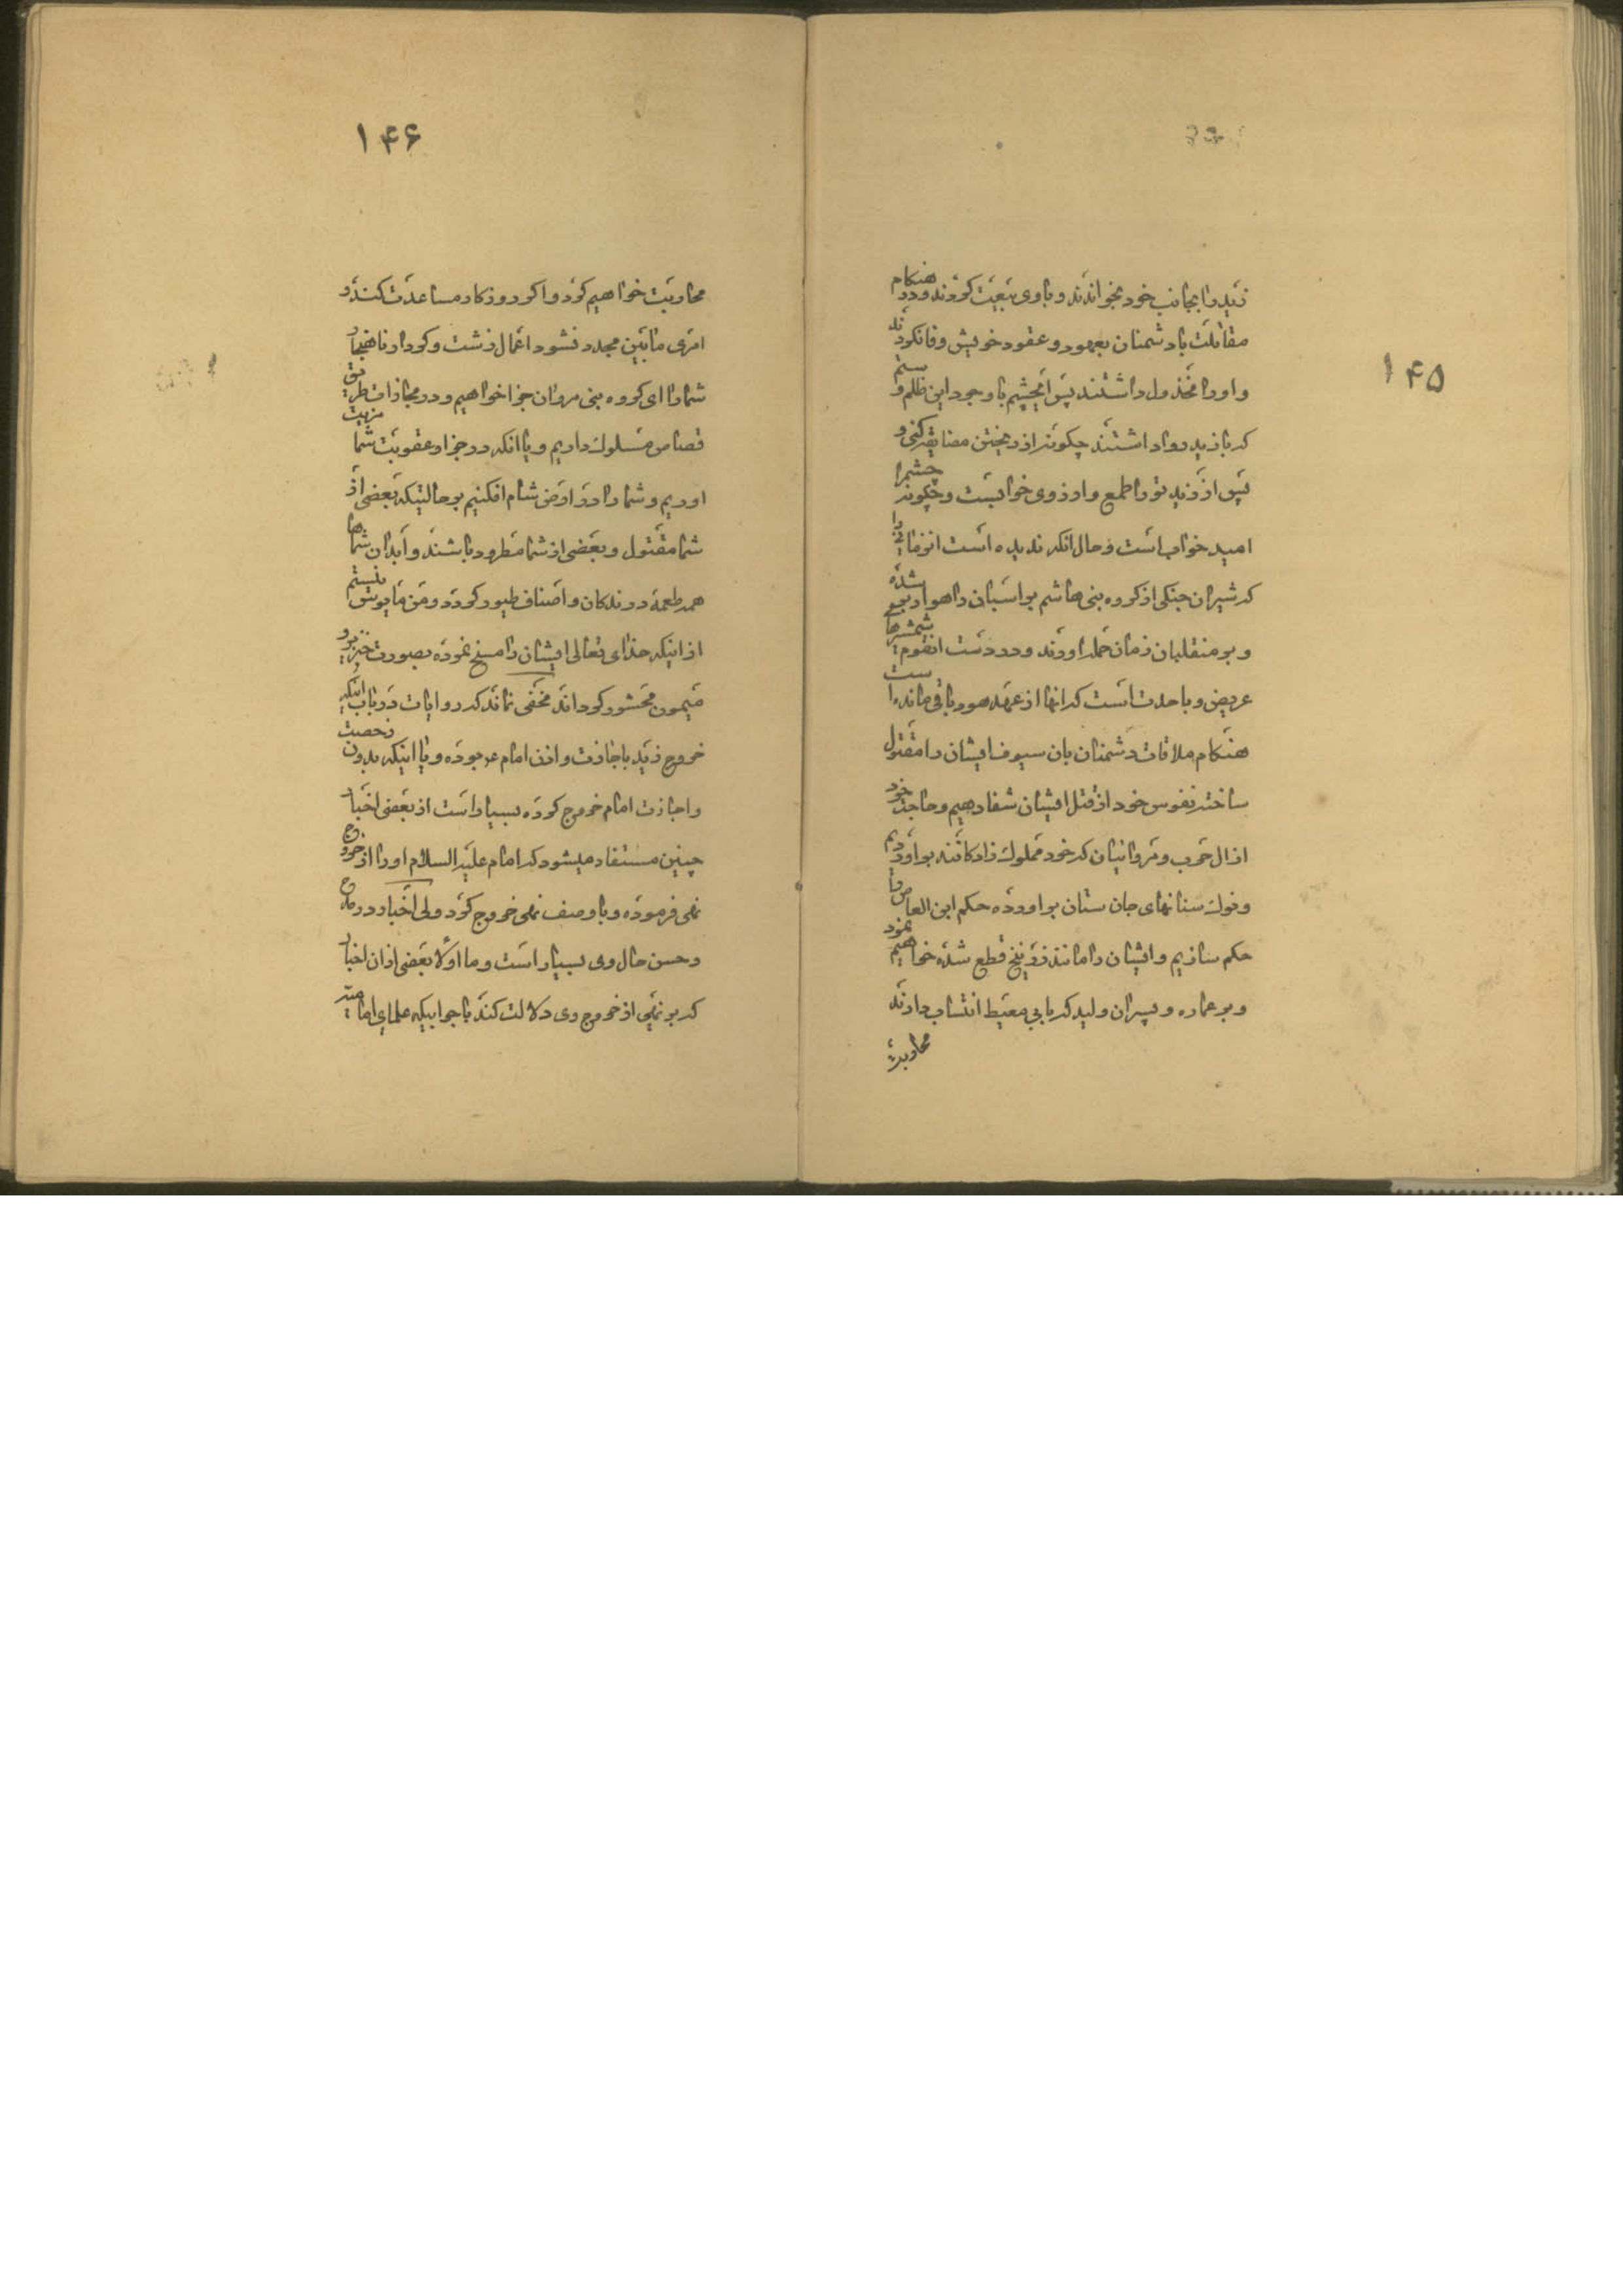 ۱۴۵
زید را بجانب خود بخواندند و با وی بیعت کردند و در هنکام
مقاتلت با دشمنان بعهود و عقود خویش وفا نکردند
و او را مخذول داشتند پس ایچشم با وجود این ظلم و ستم
که با زید روا داشتند چکونه از ریختن مضایقه کنی و
پس از زید تو را طمع و ارزوی خوابست و چکونه چشمرا
امید خواب است و حال انکه ندیده است انزمانی را
که شیران جنکی از کروه بنی هاشم بر اسبان راهوار بر شده
و بر منقلبان زمان حمله اورند و در دست انقوم شمشیرهای
عریض و با حدت است که انها از عهد هود باقی مانده است
هنکام ملاقات دشمنان بان سیوف ایشان را مقتول
ساخته نفوس خود از قتل ایشان شفا دهیم و حاجت خود
از ال حرب و مروانیان که خود مملوک زادکانند بر اوریم
و نوک سنانهای جان ستان بر اورده حکم ابن العاص را
حکم سازیم و ایشان را مانند زرنیخ قطع شده خواهیم نمود
و بر عماره و پسران ولید که بابی معیط انتساب دارند
محاربت
۱۴۶
محاربت خواهیم کرد و اکر روزکار مساعدت کند و
امری مابین مجدد نشود اعمال زشت و کردار ناهنجار
شما را ای کروه بنی مروان جزا خواهیم و در مجازات طریق
قصاص مسلوک داریم و یا انکه در جزا و عقوبت شما مزیت
اوریم و شما را در ارض شام افکنیم بر حالتیکه بعضی از
شما مقتول و بعضی از شما مطرود باشند و ابدان شماها
همه طعمه درندکان و اصناف طیور کردد و من مایوس نیستم
از اینکه خدای تعالی ایشان را مسخ نموده بصورت خنزیر و
میمون محشور کرداند مخفی نماند که روایات در باب اینکه
خروج زید باجازت و اذن امام ع بوده و یا اینکه بدون رخصت
و اجازت امام خروج کرده بسیار است از بعضی اخبار
چنین مستفاد میشود که امام علیه السلام او را از خروج
نهی فرموده و با وصف نهی خروج کرد ولی اخبار در مدح
و حسن حال وی بسیار است و ما اولا بعضی از ان اخبار
که بر نهی از خروج وی دلالت کند با جوابیکه علمای امامیه